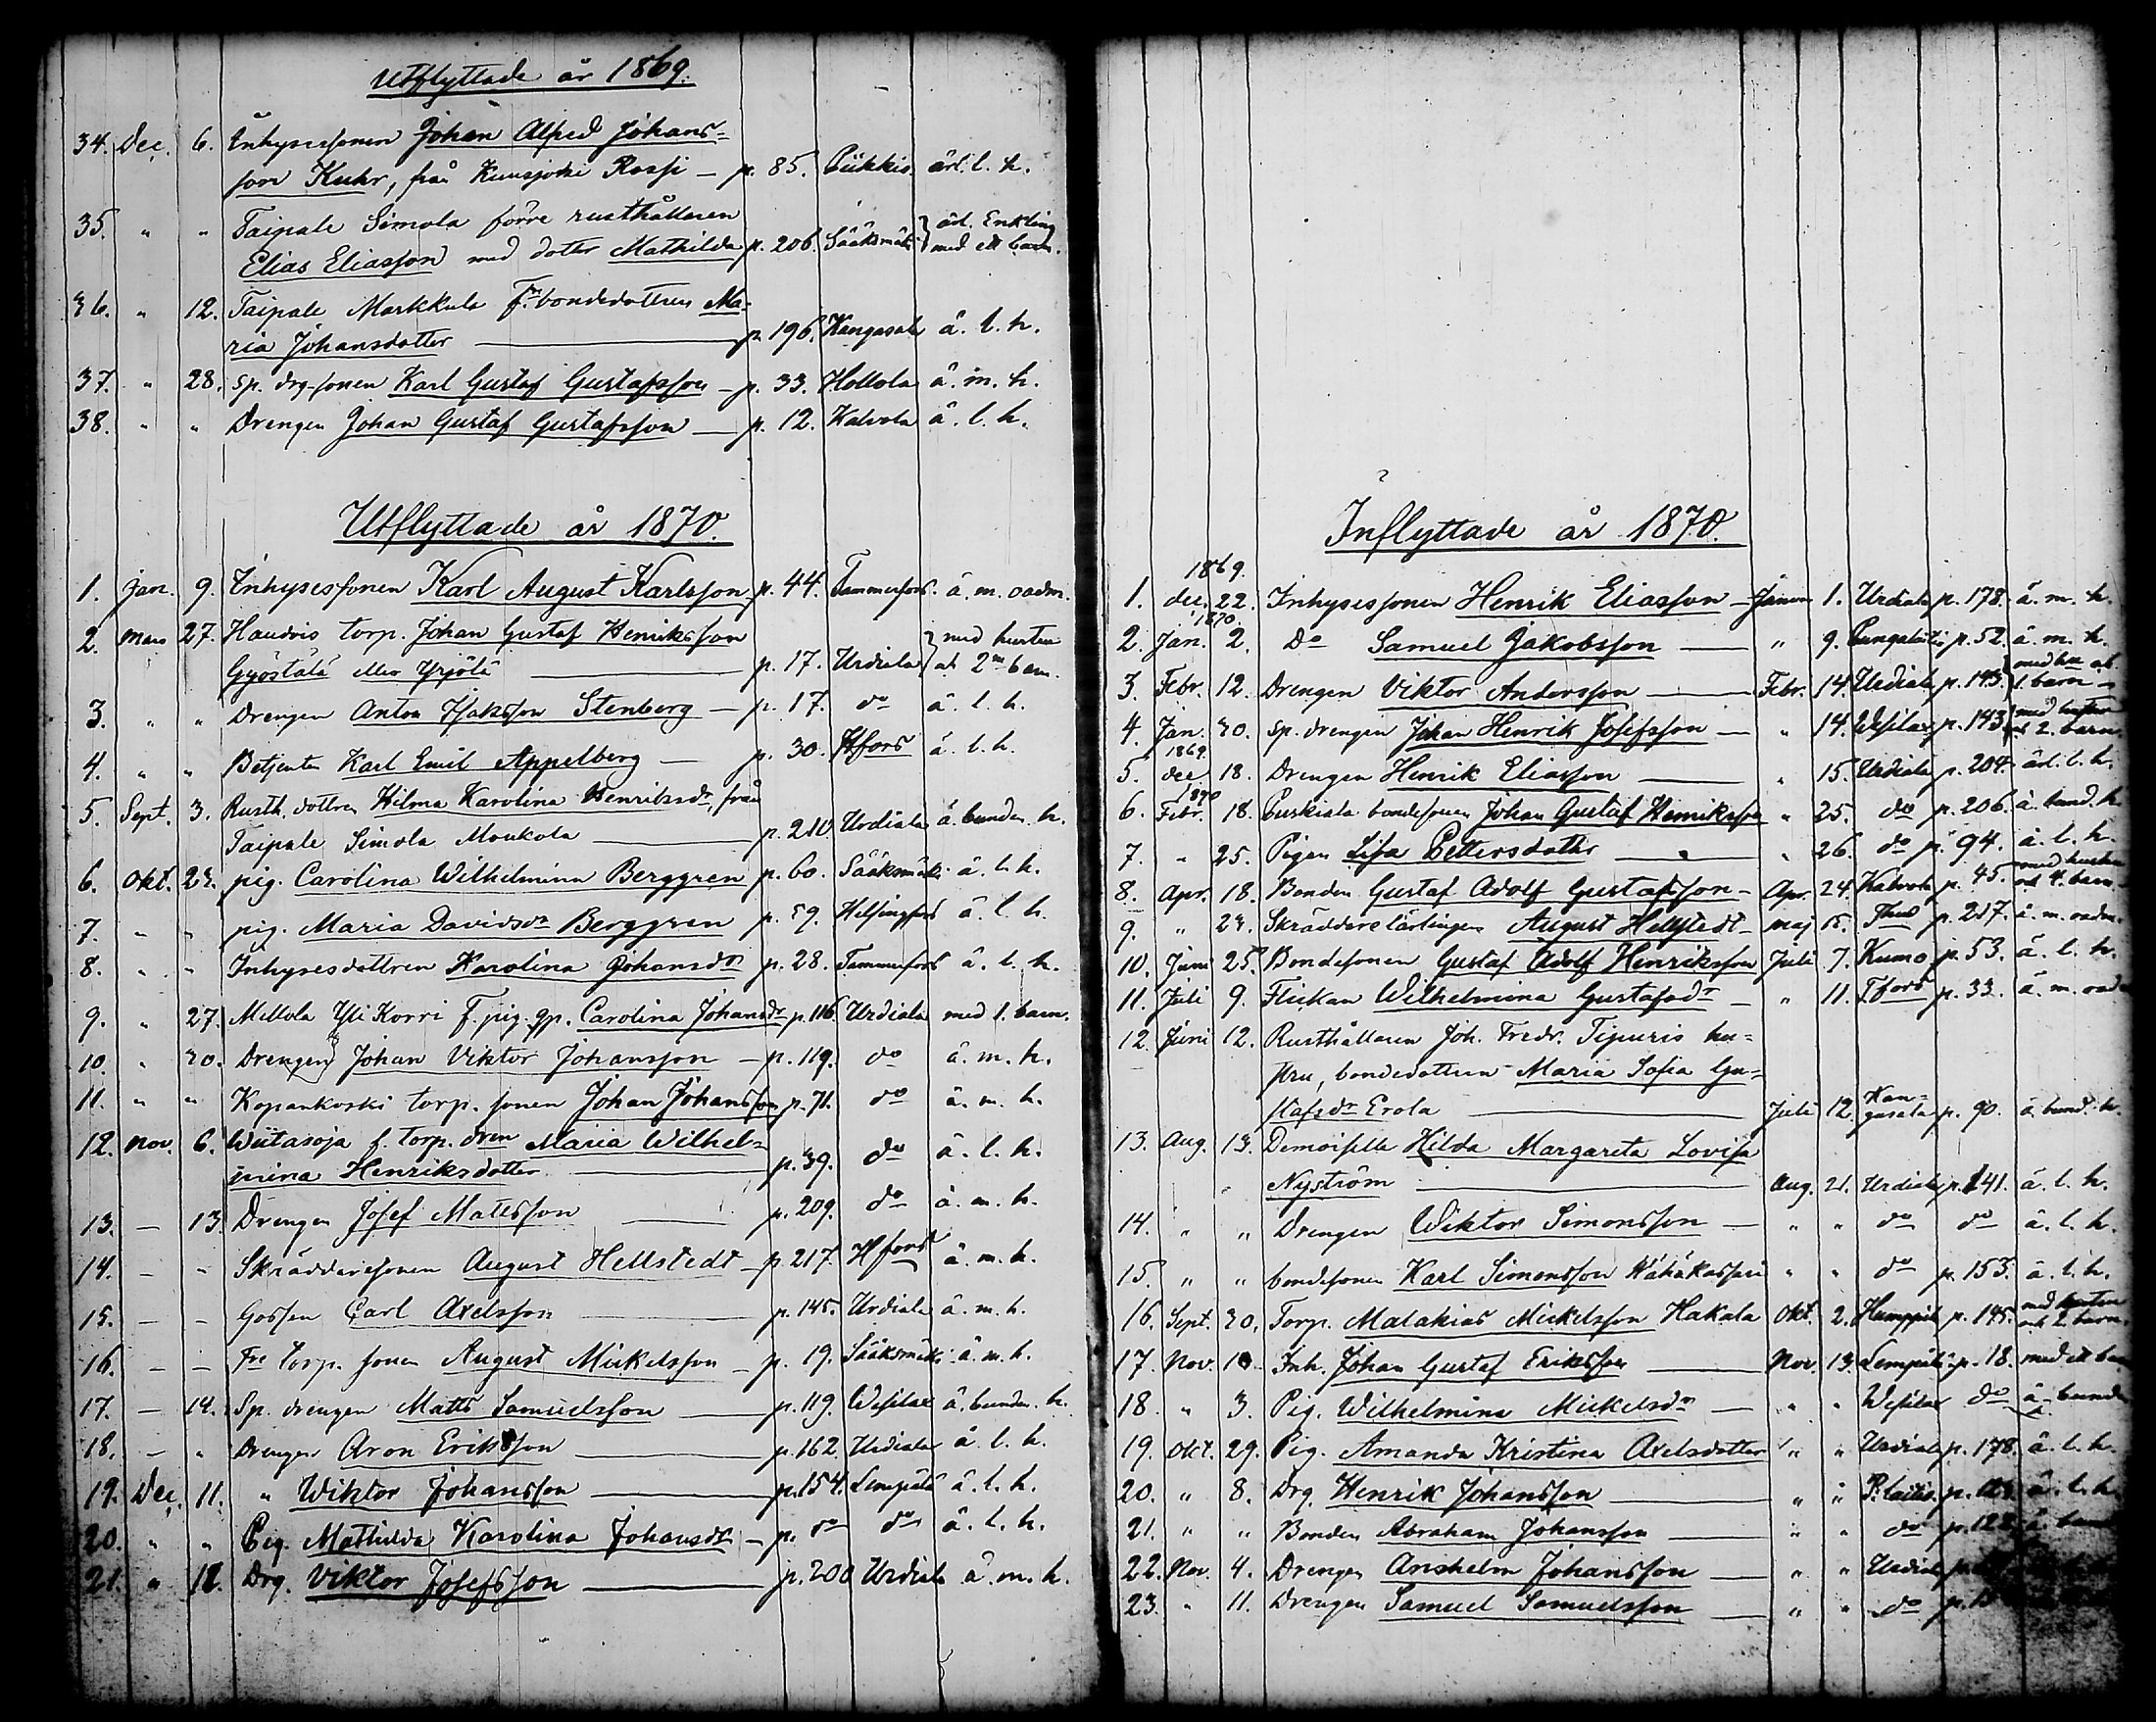 Utflyttade år 1869.
34. Dec. 6. Inhysessonen Johan Alfred Johans=
son Kuhr, från Kuusjoki Rossi — p. 85. Piikkis. ärl. l. h.
35. " " Taipale Simola förre rusthållaren
Elias Eliasson med dotter Mathilda p. 206. Sääksmäki ärl. Enkling med ett barn.
36. " 12. Taipale Markkula F. bondedottren Ma=
ria Johansdotter — p. 196. Kangasala ä. l. h.
37. " 28. Sp. drg-sonen Karl Gustaf Gustafsson — p. 33. Hollola ä. m. h.
38. " " Drengen Johan Gustaf Gustafsson — p. 12. Kalvola ä. l. h.
Utflyttade år 1870.
1. Jan. 9. Inhysessonen Karl August Karlsson p. 44. Tammerfors. ä. m. oadm.
2. Mars 27. Haudvis torp. Johan Gustaf Henriksson
Gyöstälä eller Yrjölä — p. 17. Urdiala med hustru o. 2ne barn.
3. " " Drengen Anton Isaksson Stenberg — p. 17. do ä. l. h.
4. " " Betjenten Karl Emil Appelberg — p. 30. Hfors ä. l. h.
5. Sept. 3. Rusth. dottren Hilma Karolina Henriksdr, från
Taipale Simola Moukola — p. 210. Urdiala ä. bunden. h.
6. Okt. 23. pig. Carolina Wilhelmina Berggren p. 60. Sääksmäki ä. l. h.
7. " " pig. Maria Davidsdr Berggren p. 59. Helsingfors ä. l. h.
8. " " Inhysesdottren Karolina Johansdr p. 28. Tammerfors ä. l. h.
9. " 27. Mellola Yli Korri F. pig. qp. Carolina Johansdr p. 116. Urdiala med 1. barn.
10. " 30. Drengen Johan Viktor Johansson — p. 119. do ä. m. h.
11. " " Kopankoski torp. sonen Johan Johansson p. 71. do ä. m. h.
12. Nov. 6. Wiitasoja f. torp. dren Maria Wilhel=
mina Henriksdotter — p. 39. do ä. l. h.
13. — 13. Drengen Josef Mattsson — p. 209. do ä. m. h.
14. — " Skräddaresonen August Hellstedt — p. 217. Hfors ä. m. h.
15. — — Gossen Carl Axelsson — p. 145. Urdiala ä. m. h.
16. — — Fre torp. sonen August Mickelsson — p. 19. Sääksmäki ä. m. h.
17. — 14. Sp. drengen Matts Samuelsson — p. 119. Wesilax ä. bunden. h.
18. — " Drengen Aron Eriksson — p. 162. Urdiala ä. l. h.
19. Dec. 11. " Wiktor Johansson — p. 154. Lempälä ä. l. h.
20. " " Pig. Mathilda Karolina Johansdr — p. do do ä. l. h.
21. " 12. Drg. Viktor Josefsson — p. 200 Urdiala ä. m. h.
Inflyttade år 1870.
1869.
1. Dec. 22. Inhysessonen Henrik Eliasson — Januar 1. Urdiala p. 178. ä. m. h.
1870.
2. Jan. 2. Do Samuel Jakobsson — " 9. Pungalaitio p. 52. ä. m. h.
3. Febr. 12. Drengen Viktor Andersson — Febr. 14. Urdiala p. 193. med hu o. 1. barn
4. Jan. 30. Sp. drengen Johan Henrik Josefsson — " 14. Wesilax p. 143. med hustru o 2. barn.
1869
5. Dec 18. Drengen Henrik Eliasson — " 15. Urdiala p. 204. ärl. l. h.
1870
6. Febr. 18. Purkiala bondesonen Johan Gustaf Henriksson " 25. do p. 206. ä. bund. h
7. " 25. Pigan Lisa Pettersdotter — " 26. do p. 94. ä. l. h.
8. Apr. 18. Bonden Gustaf Adolf Gustafsson — Apr. 24. Kalvola p. 45. med hustru och 4. barn
9. " 23. Skräddarelärlingen August Hellstedt — Maj p. 217. ä. m. oadm.
10. Juni 25. Bondesonen Gustaf Adolf Henriksson Juli 7. Kumo p. 53. ä. l. h.
11. Juli 9. Flickan Wilhelmina Gustafsdr — " 11. Tfors p. 33. ä. m. oad
12. Juni 12. Rusthållaren Joh. Fredr. Tipuris hu=
stru, bondedottren Maria Sofia Gu=
stafsdr Erola — Juli 12. Kangasala p. 90. ä. bund. h.
13. Aug. 13. Demoiselle Hilda Margareta Lovisa
Nyström — Aug. 21. Urdiala p. 141. ä. l. h.
14. " " Drengen Wiktor Simonsson — " " do do ä. l. h.
15. " " bondesonen Karl Simonsson Kähäkassari " " do p. 153. ä. l. h.
16. Sept. 30. Torp. Malakias Mickelsson Hakala Okt. 2. Humppila p. 195. med hustru och 2. barn.
17. Nov. 10. Inh. Johan Gustaf Eriksson — Nov. 13. Lempälä p. 18. med ett barn
18. " 3. Pig. Wilhelmina Mickelsdr — " " Wesilax do ä. bunden
19. Okt. 29. Pig. Amanda Kristina Axelsdotter " " Urdiala p. 178. ä. l. h.
20. " 8. Drg. Henrik Johansson — " " P:laitio. p. ä. l. h.
21. " " Bonden Abraham Johansson — " " do p. 128. ä. bund
22. Nov. 4. Drengen Anshelm Johansson — " " Urdiala p.
23. " 11. Drengen Samuel Samuelsson — " " do p.